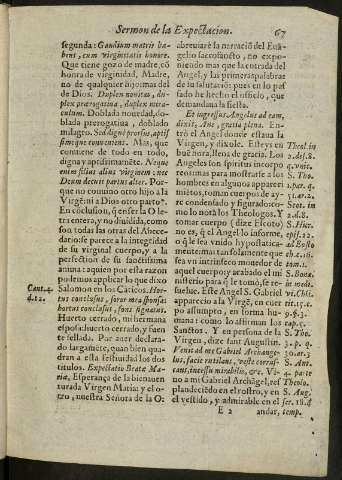 Sermon de la Expectacion. 67
segunda: Gaudium matris ha-
bens, cum virginitatis honore.
Que tiene gozo de madre, cō
honra de virginidad, Madre,
no de qualquiera,
de Dios. Duplex nouitas, du-
plex prerogatiua, duplex mira-
culum. Doblada nouedad, do-
blada prerogatiua, doblado
milagro. Sed digné prorsus, aptis
simeque conueniens. Mas, que
conuiene de todo en todo,
digna y aptissimamēte. Neque
enim filius alius virginem: nec
Deum decuit partus alter. Por-
que no conuino otro hijo a la
Virgē: ni a Dios otro parto.
En cōclusion, q̄ enser la O le-
tra entera, y no diuidida, como
son todas las otras del Abece-
dario: se parece a la integridad
de su virginal cuerpo, y a la
perfection de su sanctissima
anima: a quien por esta razon
podemos applicar lo que dixo
Salomon en los Cāticos. Hor-
tus conclusus, soror mea sponsa:
hortus conclusus, fons signatus.
Huerto cerrado, mi hermana
esposa: huerto cerrado, y fuen
te sellada. Por auer declara-
do largamēte, quan bien qua-
dran a esta festiuidad los dos
titulos. Expectatio Beatæ Ma-
riæ, Esperança de la bienauen
turada Virgen Maria: y el o-
tro, nuestra Señora de la O:
Cant. 4.
d. 12.
abreuiaré la narraciō del Euā-
gelio sacrosancto, no expo-
niendo mas que la entrada del
Angel, y las primeras palabras
de su salutaciō: pues en lo pas
sado he hecho el officio, que
demandaua la fiesta.
Et ingressus Angelus ad eam,
dixit, Aue, gratia plena. En-
trō el Angel donde estaua la
Virgen, y dixole. Esteys en
buē hora, llena de gracia. Los
Angeles son spiritus incorpo
reos: mas para mostrarse a los
hombres en algunos appareci
mientos, toman cuerpos de ay-
re condensado y figurado: co-
mo lo notā los Theologos. Y
tomar cuerpo (dize Escoto)
no es, q̄ el Angel lo informe.
o q̄ le sea vnido hypostatica-
mente: mas tan solamente que
sea vn intrinseco mouedor de
aquel cuerpo: y acabado el mi
nisterio para q̄ le tomō, se re-
suelue. Este Angel S. Gabriel
aparecio a la Virgē, en cuer
po assumpto, en forma hu-
mana: como lo affirman los
Sanctos. Y en persona de la
Virgen, dize sant Augustin.
Venit ad me Gabriel Archange-
lus, facie rutilans, veste corus-
cans, incessu mirabilis, &c. Vi-
no a mi Gabriel Archāgel, res
plandeciēdo en el rostro, y en
el vestido, y admirable en el
Theol. in
2. dis. 8.
S. Tho.
1. par. q.
Scot. in
2. d. 8.
S. Hier.
S. Bona.
S. Tho.
3. p. q.
30. ar. 3.
S. Aug.
E 2 andar,